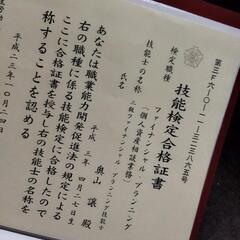 第三六一〇一二一三二三八六五号
技能検定合格証書
検定職種
ファイナンシャル プランニング
(個人資産相談業務)
技能士の名称
二級ファイナンシャル プランニング技能士
氏名
奥山 譲 殿
平成 三年 四月二七日生
あなたは職業能力開発促進法の規定による
右の職種に係る技能検定に合格したので
ここに合格証書を授与し右の技能士の名称を
称することを認める
平成二三年一〇月二四日